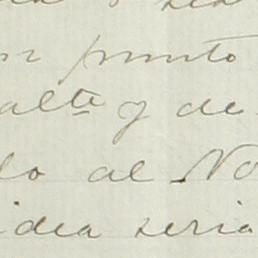 punto
alta y de
do al No
idea seria